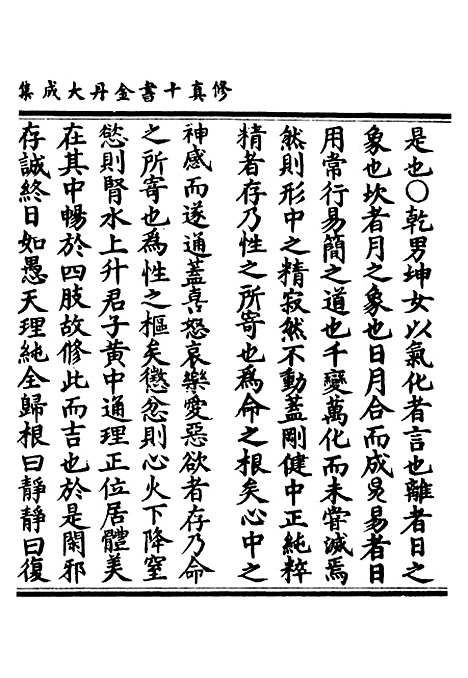 修真十書金丹大成集
是也〇乾男坤女以氣化者言也離者日之
象也坎者月之象也日月合而成易易者日
用常行易簡之道也千變萬化而未嘗滅焉
然則形中之精寂然不動蓋剛健中正純粹
精者存乃性之所寄也爲命之根矣心中之
神感而遂通蓋喜怒哀樂愛惡欲者存乃命
之所寄也爲性之樞矣懲忿則心火下降窒
慾則腎水上升君子黃中通理正位居體美
在其中暢於四肢故修此而吉也於是閑邪
存誠終日如愚天理純全歸根曰靜靜曰復